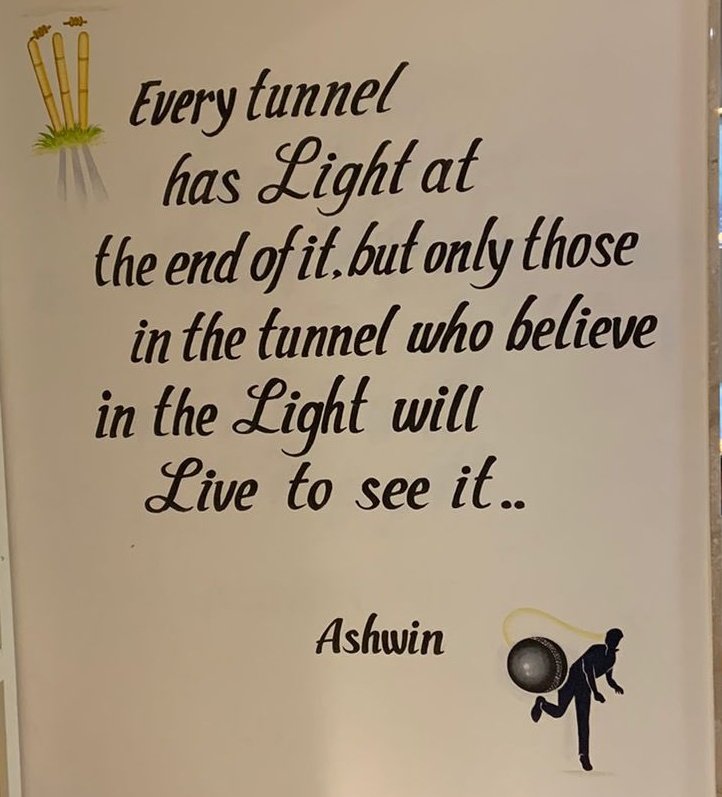 Every tunnel
has Light at
the end of it. but only those
in the tunnel who believe
in the Light will
Live to see it..
Ashwin